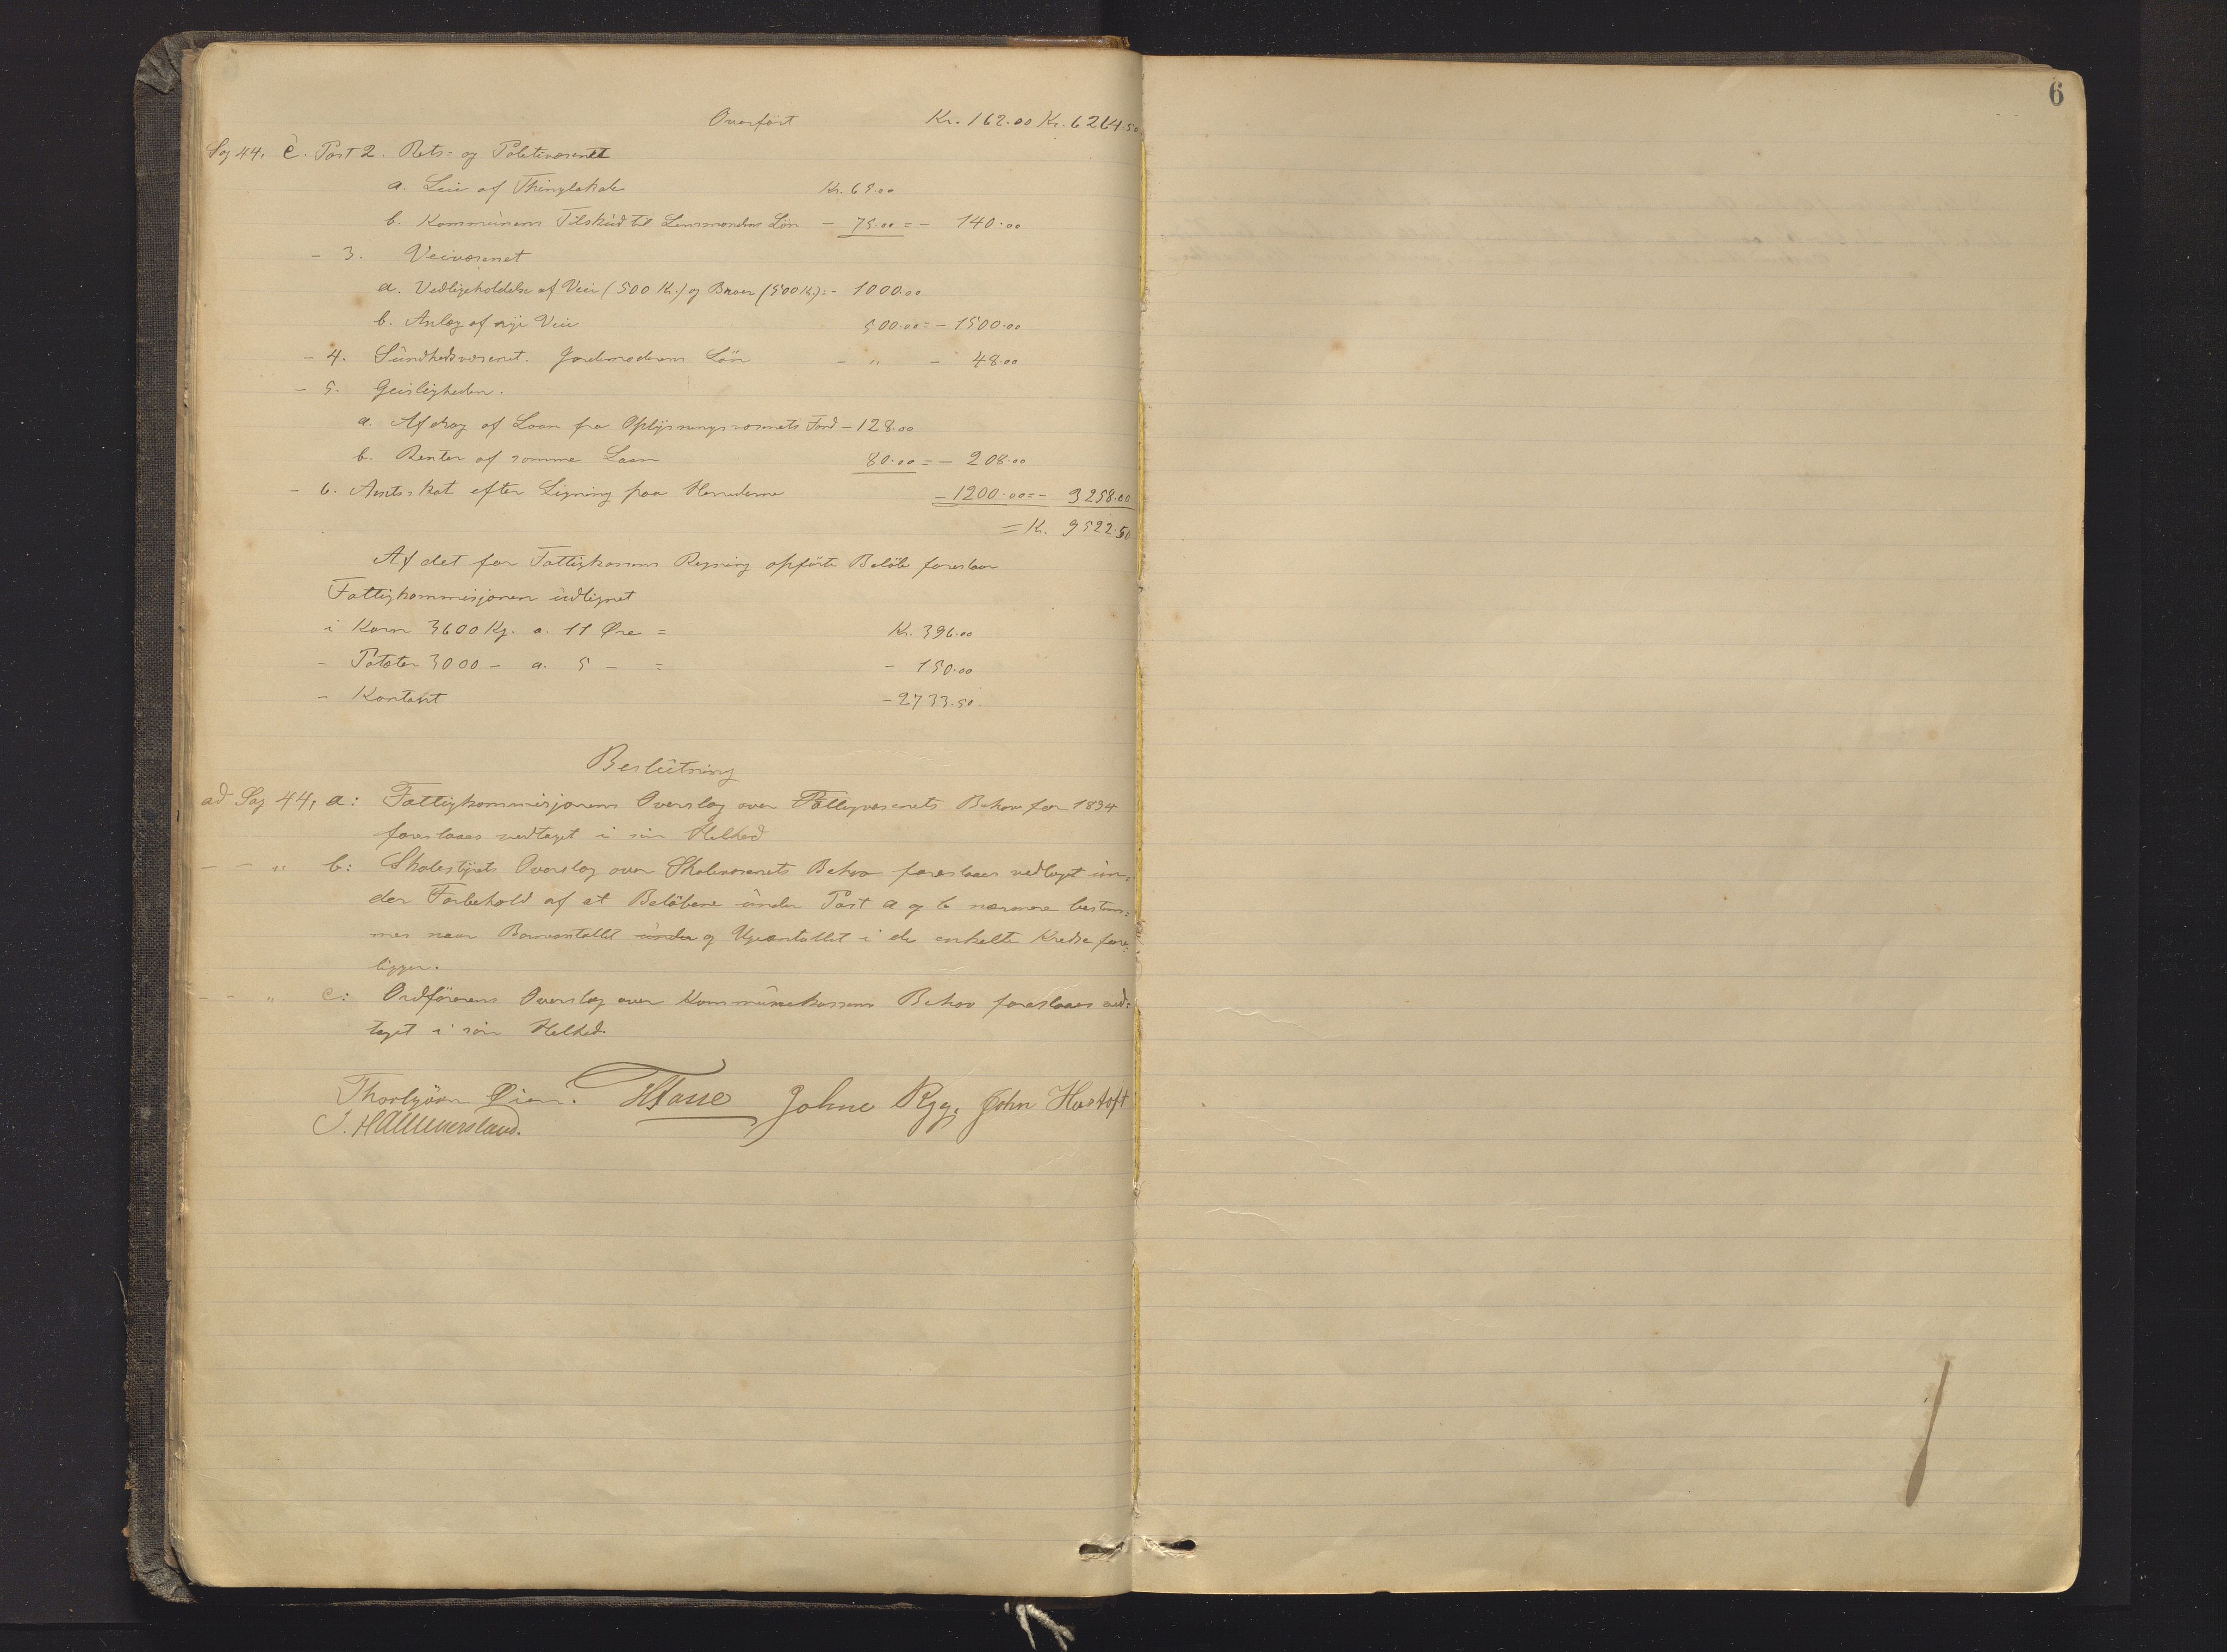 6
Overført Kr. 162.00 Kr. 6264.50
Sag 44, c. Post 2. Rets= og Politivæsenet
a. Leie af Thinglokale Kr. 65.00
b. Kommunens Tilskud til Lensmandens Løn - 75.00 = - 140.00
- 3. Veivæsenet
a. Vedligeholdelse af Veie (500 Kr.) og Broer (500 Kr.) = - 1000.00
b. Anlæg af nye Veie 500.00 = - 1500.00
- 4. Sundhedsvæsenet. Jordmoderens Løn - " - 48.00
- 5. Geistligheden.
a. Afdrag af Laan fra Oplysningsvæsenets Fond - 128.00
b. Renter af samme Laan 80.00 = - 208.00
- 6. Amtsskat efter Ligning paa Herrederne - 1200.00 = - 3258.00
= Kr. 9522.50
Af det for Fattigkassens Regning opførte Beløb foreslaar
Fattigkommisjonen udlignet
i Korn 3600 Kg. a. 11 Øre = Kr. 396.00
- Poteter 3000 - a. 5 - = - 150.00
- Kontant - 2733.50.
Beslutning
ad Sag 44, a: Fattigkommisjonens Overslag over Fattigvæsenets Behov for 1894
foreslaaes vedtaget i sin Helhed
- - " b: Skolestyrets Overslag over Skolevæsenets Behov foreslaaes vedtaget un=
der Forbehold af at Beløbene under Post a og b nærmere bestem=
mes naar Barneantallet under og Ugeantallet i de enkelte Kredse fore=
ligger.
- - " c: Ordførerens Overslag over Kommunekassens Behov foreslaaes ved=
taget i sin Helhed.
Thorbjørn Øien. Johne Ryg. John Hustoft
J. Hammersland.